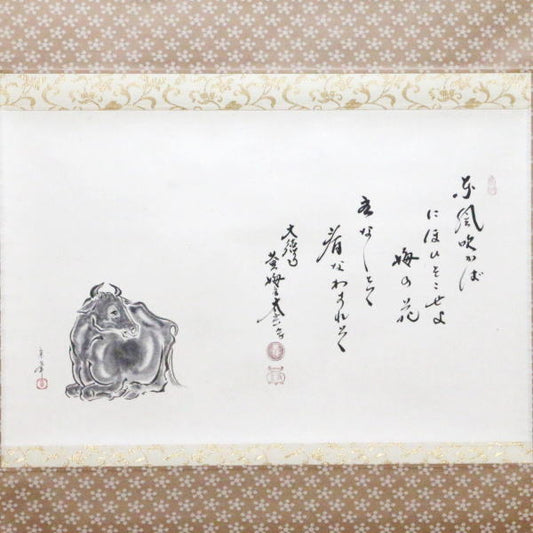 东風吹かば
にほひをこせよ
梅の花
主なしとて
春なわすれそ
大徳寺
黄梅